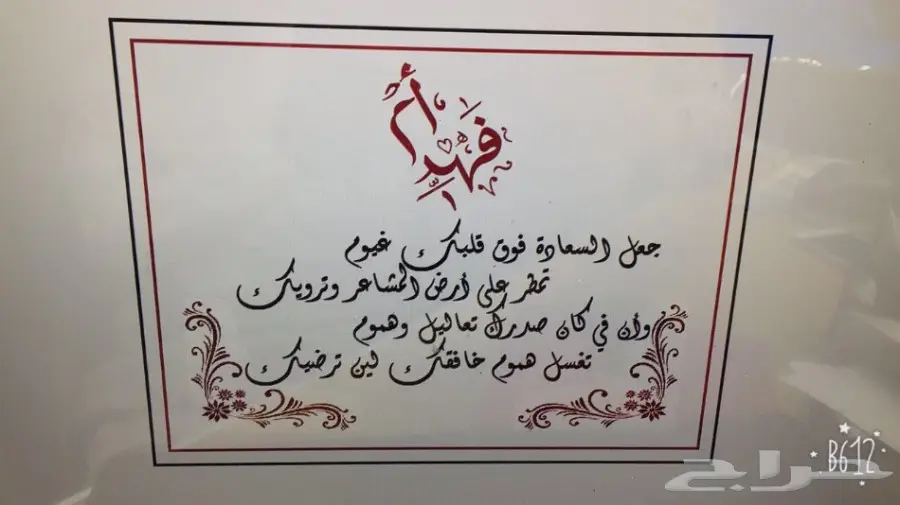 أم فهد
جعل السعادة فوق قلبك غيوم
تمطر على أرض المشاعر وترويك
وأن في كان صدرك تعاليل وهموم
تغسل هموم خافقك لين ترضيك
حراج
B612